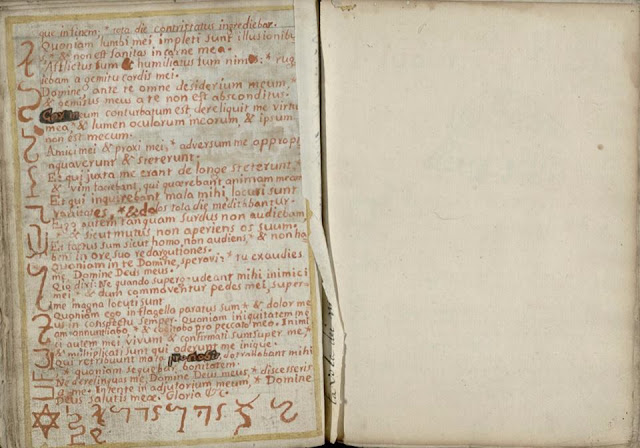 que in finem; * tota die contristatus ingrediebar.
Quoniam lumbi mei impleti sunt illusionibu
* & non est sanitas in carne mea.
Afflictus sum & humiliatus sum nimis: * rug
iebam a gemitu cordis mei.
Domine, ante te omne desiderium meum,
& gemitus meus a te non est absconditus.
Cor meum conturbatum est dereliquit me virtu
mea, & lumen oculorum meorum, & ipsum
non est mecum.
Amici mei & proxi mei, * adversum me appropi
nquaverunt & steterunt;
Et qui juxta me erant de longe steterunt, *
& vim faciebant, qui quærebant animam meam
Et qui inquirebant mala mihi locuti sunt
vanitates, * & dolos tota die meditabantur.
Ego autem tanquam surdus non audiebam
* & sicut mutus non aperiens os suum.
Et factus sum sicut homo non audiens, * & non ha
bens in ore suo redargutiones.
Quoniam in te Domine, speravi: * tu exaudies
me, Domine Deus meus.
Quia dixi: Ne quando supergaudeant mihi inimici
mei: * & dum commoventur pedes mei, super
me magna locuti sunt.
Quoniam ego in flagella paratus sum * & dolor me
us in conspectu semper. Quoniam iniquitatem me
am annuntiabo * & cogitabo pro peccato meo. Inimi
ci autem mei vivunt & confirmati sunt super me, *
& multiplicati sunt qui oderunt me inique.
Qui retribuunt mala detrahebant mihi
* quoniam sequebar bonitatem.
Ne derelinquas me, Domine Deus meus, * discesseris
a me. Intente in adjutorium meum, * Domine
Deus salutis meæ. Gloria &c.